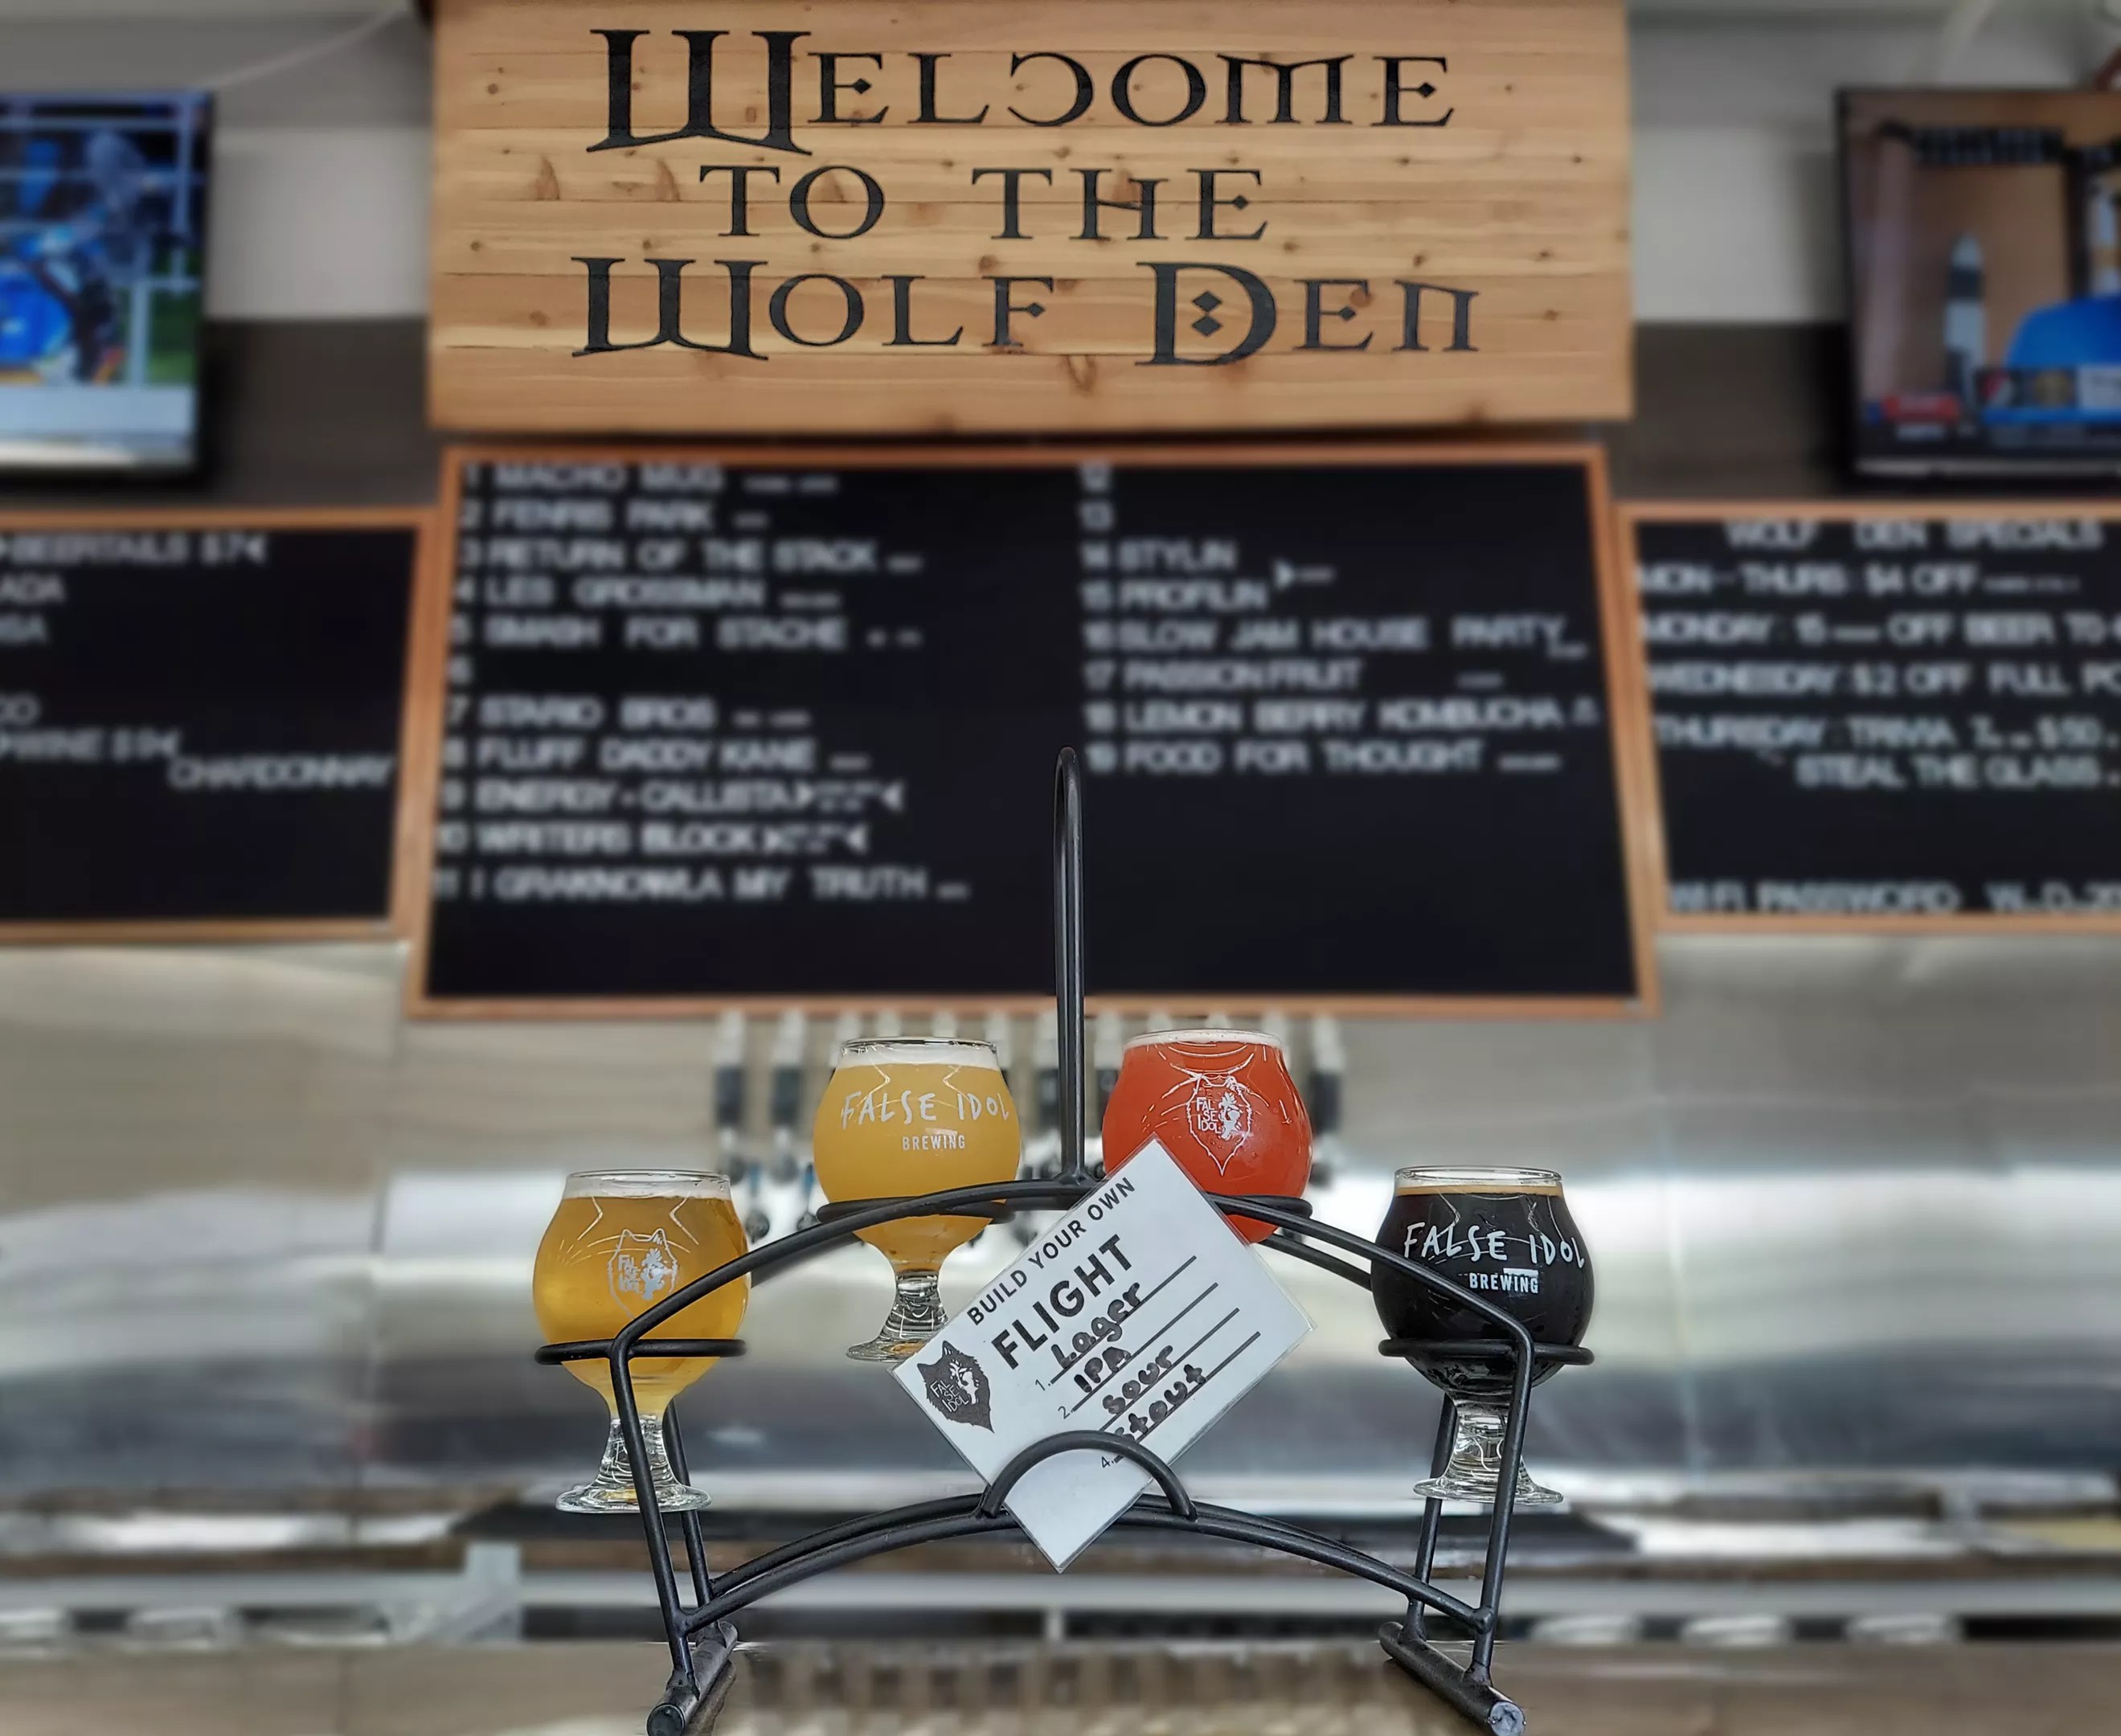 WELCOME
TO THE
WOLF DEN
BEERTAILS $7
WINE $9
CHARDONNAY
1 MACHO MUG
2 FENRIS PARK
3 RETURN OF THE STACK
4 LES GROSSMAN
5 SMASH FOR STACHE
6
7 STARIO BROS
8 FLUFF DADDY KANE
9 ENERGY - CALLISTA
10 WRITERS BLOCK
11 I GRAKNOWLA MY TRUTH
12
13
14 STYLIN
15 PROFILIN
16 SLOW JAM HOUSE PARTY
17 PASSIONFRUIT
18 LEMON BERRY KOMBUCHA
19 FOOD FOR THOUGHT
WOLF DEN SPECIALS
MON-THURS: $4 OFF
MONDAY: 15 OFF BEER TO
WEDNESDAY: $2 OFF FULL
THURSDAY: TRIVIA $50
STEAL THE GLASS
WIFI PASSWORD
FALSE IDOL
BREWING
FALSE IDOL
FALSE IDOL
FALSE IDOL
BREWING
BUILD YOUR OWN
FLIGHT
1. Lager
2. IPA
Sour
4. Stout
FALSE IDOL